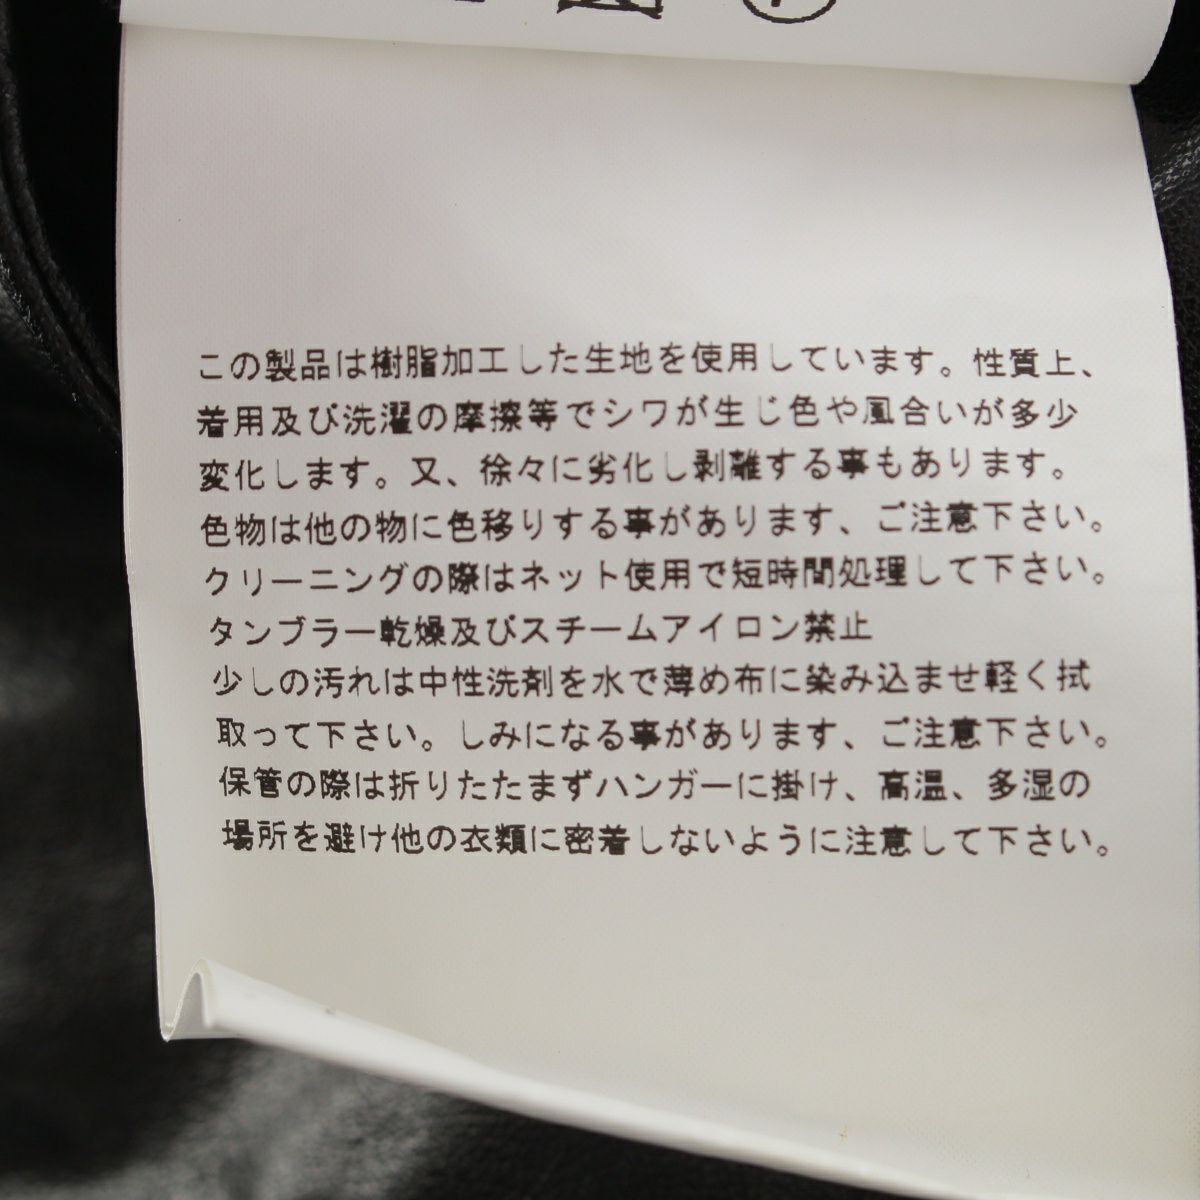 この製品は樹脂加工した生地を使用しています。性質上、
着用及び洗濯の摩擦等でシワが生じ色や風合いが多少
変化します。又、徐々に劣化し剥離する事もあります。
色物は他の物に色移りする事があります、ご注意下さい。
クリーニングの際はネット使用で短時間処理して下さい。
タンブラー乾燥及びスチームアイロン禁止
少しの汚れは中性洗剤を水で薄め布に染み込ませ軽く拭
取って下さい。しみになる事があります、ご注意下さい。
保管の際は折りたたまずハンガーに掛け、高温、多湿の
場所を避け他の衣類に密着しないように注意して下さい。